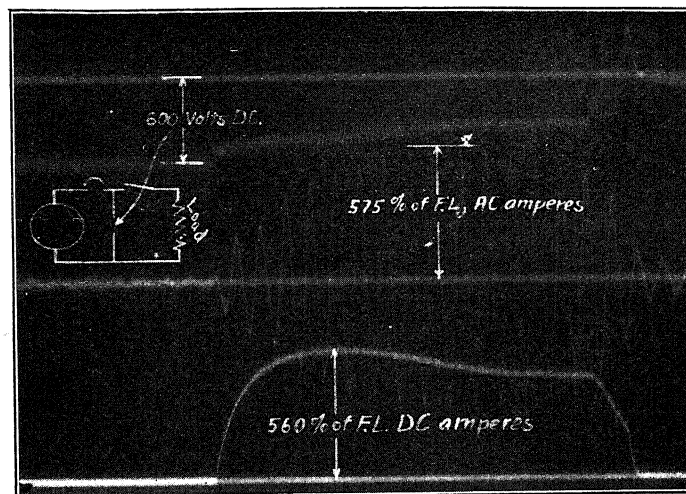 600 Volts D.C.
Load
575 % of F.L. AC amperes
560 % of F.L. DC amperes